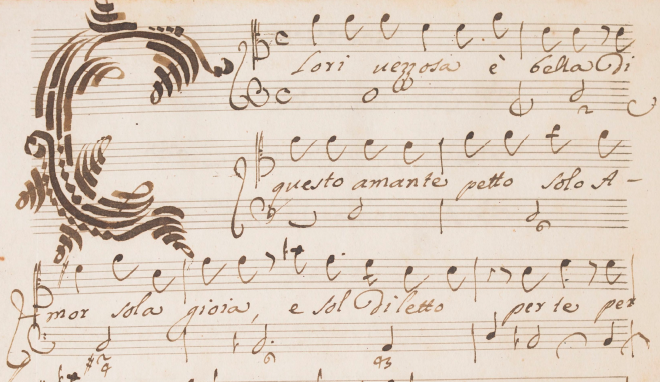 Clori vezzosa è bella Di
questo amante petto solo A-
mor sola gioia, e sol Diletto per te per